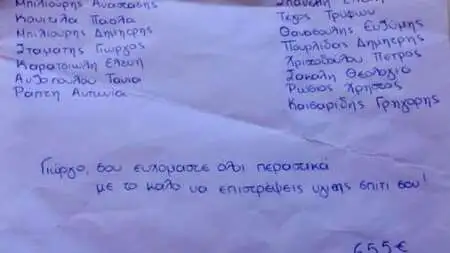 Μπιλιούρης Αναστάσης
Κουτιλα Παολα
Μπιλιούρης Δημητρης
Σταματης Γιωργος
Καρατσιωλη Ελενη
Ανθοπουλου Τανια
Ραπτη Αντωνια
Τεγος Τρυφων
Θανασουλης Ευθυμης
Πουρλιδας Δημητρης
Χριστοδουλου Πετρος
Σακαλη Θεολογια
Ρωσιος Χρηστος
Καισαρίδης Γρηγορης
Γιώργο, σου ευχομαστε ολοι περαστικά
με το καλο να επιστρέψεις υγιης σπιτι σου!
655€